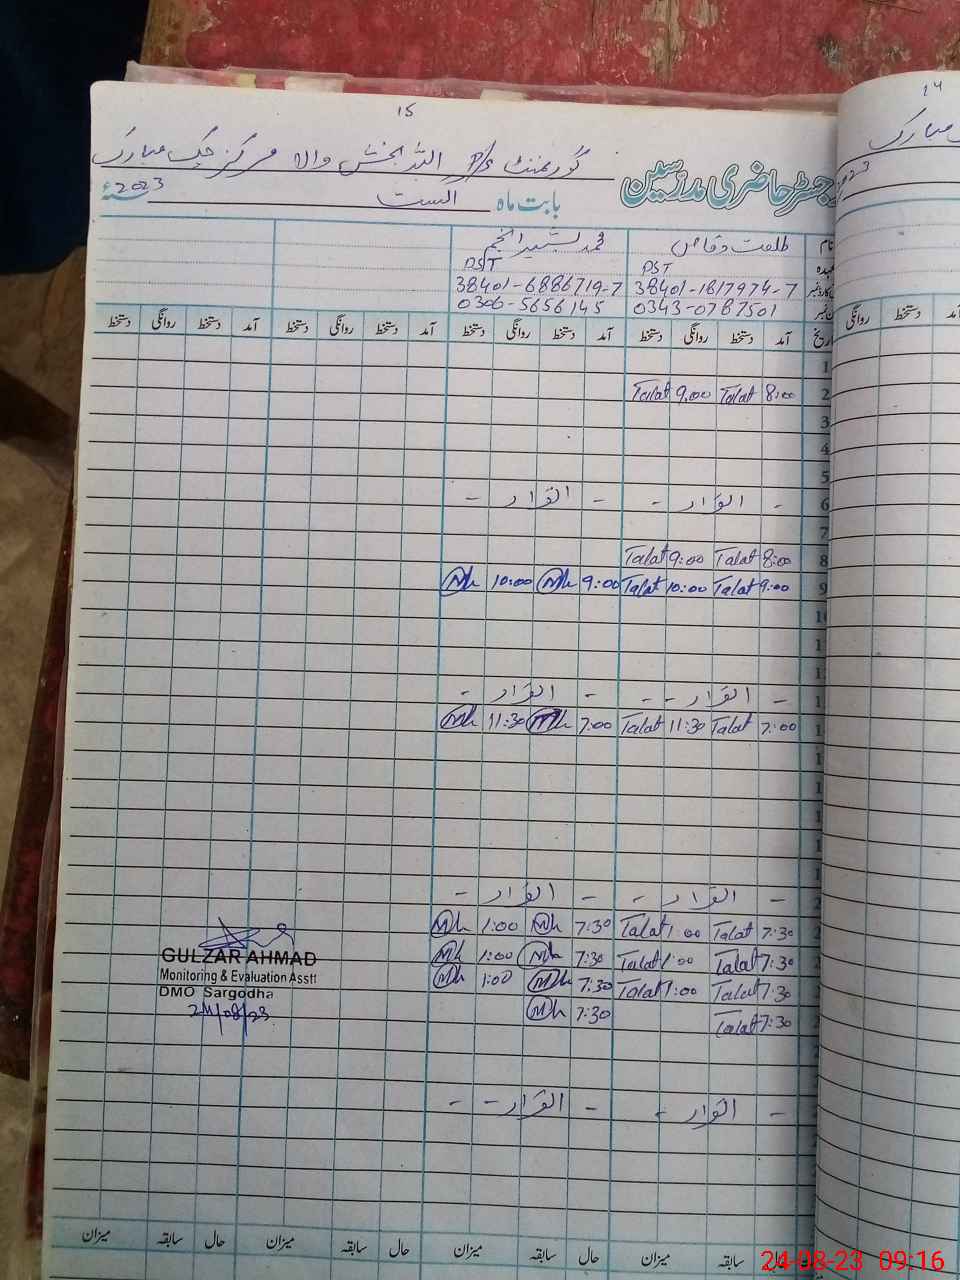 15
14
گورنمنٹ P/S اللہ بخش والا مرکز چک مبارک
رجسٹر حاضری مدرسین
بابت ماہ اگست 2023ء
نام طلعت وقاص محمد بشیر انجم
عہدہ PST PST
38401-1817974-7 38401-6886719-7
0343-0787501 0306-5656145
تاریخ آمد دستخط روانگی دستخط آمد دستخط روانگی دستخط آمد دستخط روانگی دستخط آمد دستخط روانگی دستخط
1
2 8:00 Talat 9:00 Talat
3
4
5
6 - اتوار - - اتوار -
7
8 8:00 Talat 9:00 Talat
9 9:00 Talat 10:00 Talat 9:00 Mh 10:00 Mh
- اتوار - - اتوار -
7:00 Talat 11:30 Talat 7:00 Mh 11:30 Mh
- اتوار - - اتوار -
7:30 Talat 1:00 Talat 7:30 Mh 1:00 Mh
7:30 Talat 1:00 Talat 7:30 Mh 1:00 Mh
7:30 Talat 1:00 Talat 7:30 Mh 1:00 Mh
7:30 Talat 7:30 Mh
GULZAR AHMAD
Monitoring & Evaluation Asstt
DMO Sargodha
24/08/23
- اتوار - - اتوار -
حال سابقہ میزان حال سابقہ میزان حال سابقہ میزان حال سابقہ میزان
24-08-23 09:16